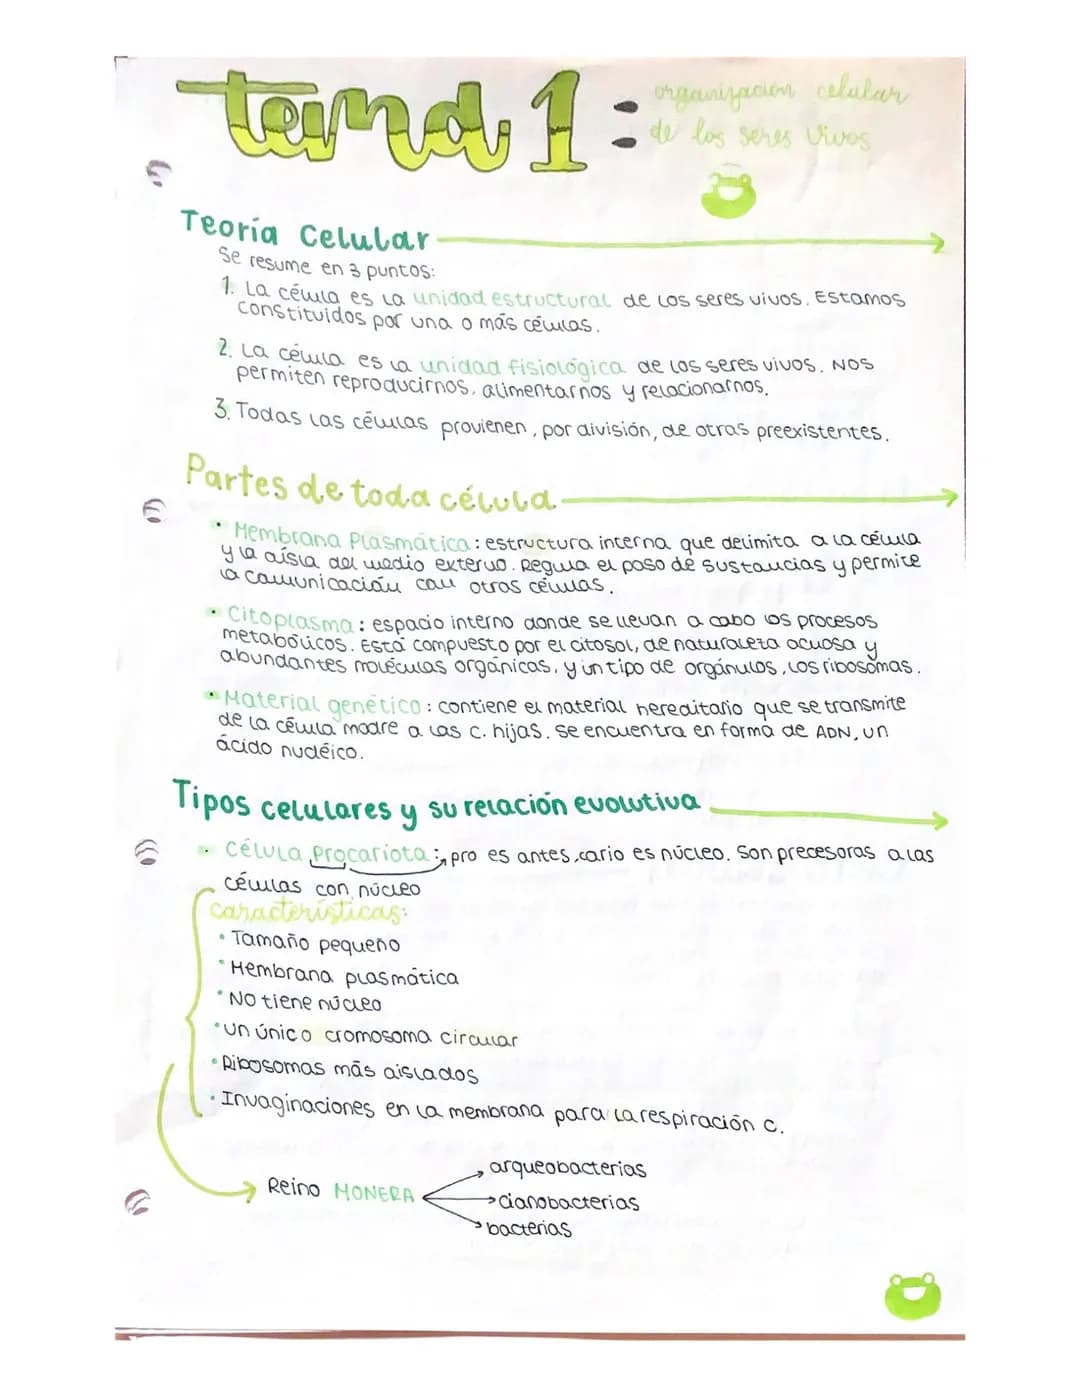 tema 1:
organización celular
de los seres vivos
Teoría Celular
Se resume en 3 puntos:
1. La célula es la unidad estructural de los seres vivos. Estamos
constituidos por una o más células.
2. La célula es la unidad fisiológica de los seres vivos. Nos
permiten reproducirnos, alimentarnos y relacionarnos.
3. Todas las células provienen, por división, de otras preexistentes.
Partes de toda célula
• Membrana Plasmática: estructura interna que delimita a la célula
y la aísla del medio externo. Regula el paso de sustancias y permite
la comunicación con otras células.
• Citoplasma: espacio interno donde se llevan a cabo los procesos
metabólicos. Está compuesto por el citosol, de naturaleza acuosa y
abundantes moléculas orgánicas, y un tipo de orgánulos, los ribosomas.
• Material genético: contiene el material hereditario que se transmite
de la célula madre a las c. hijas. Se encuentra en forma de ADN, un
ácido nucléico.
Tipos celulares y su relación evolutiva
• Célula Procariota: pro es antes, cario es núcleo. Son precesoras a las
células con núcleo
características:
• Tamaño pequeño
• Membrana plasmática
• No tiene núcleo
• Un único cromosoma circular
• Ribosomas más aislados
• Invaginaciones en la membrana para la respiración c.
arqueobacterias
Reino MONERA
cianobacterias
bacterias